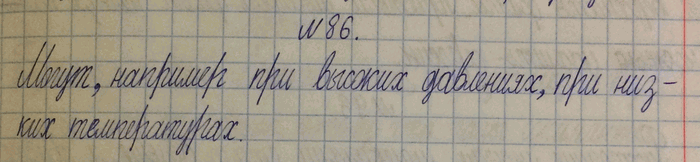 №86.
Могут, например при высоких давлениях, при низ-
ких температурах.